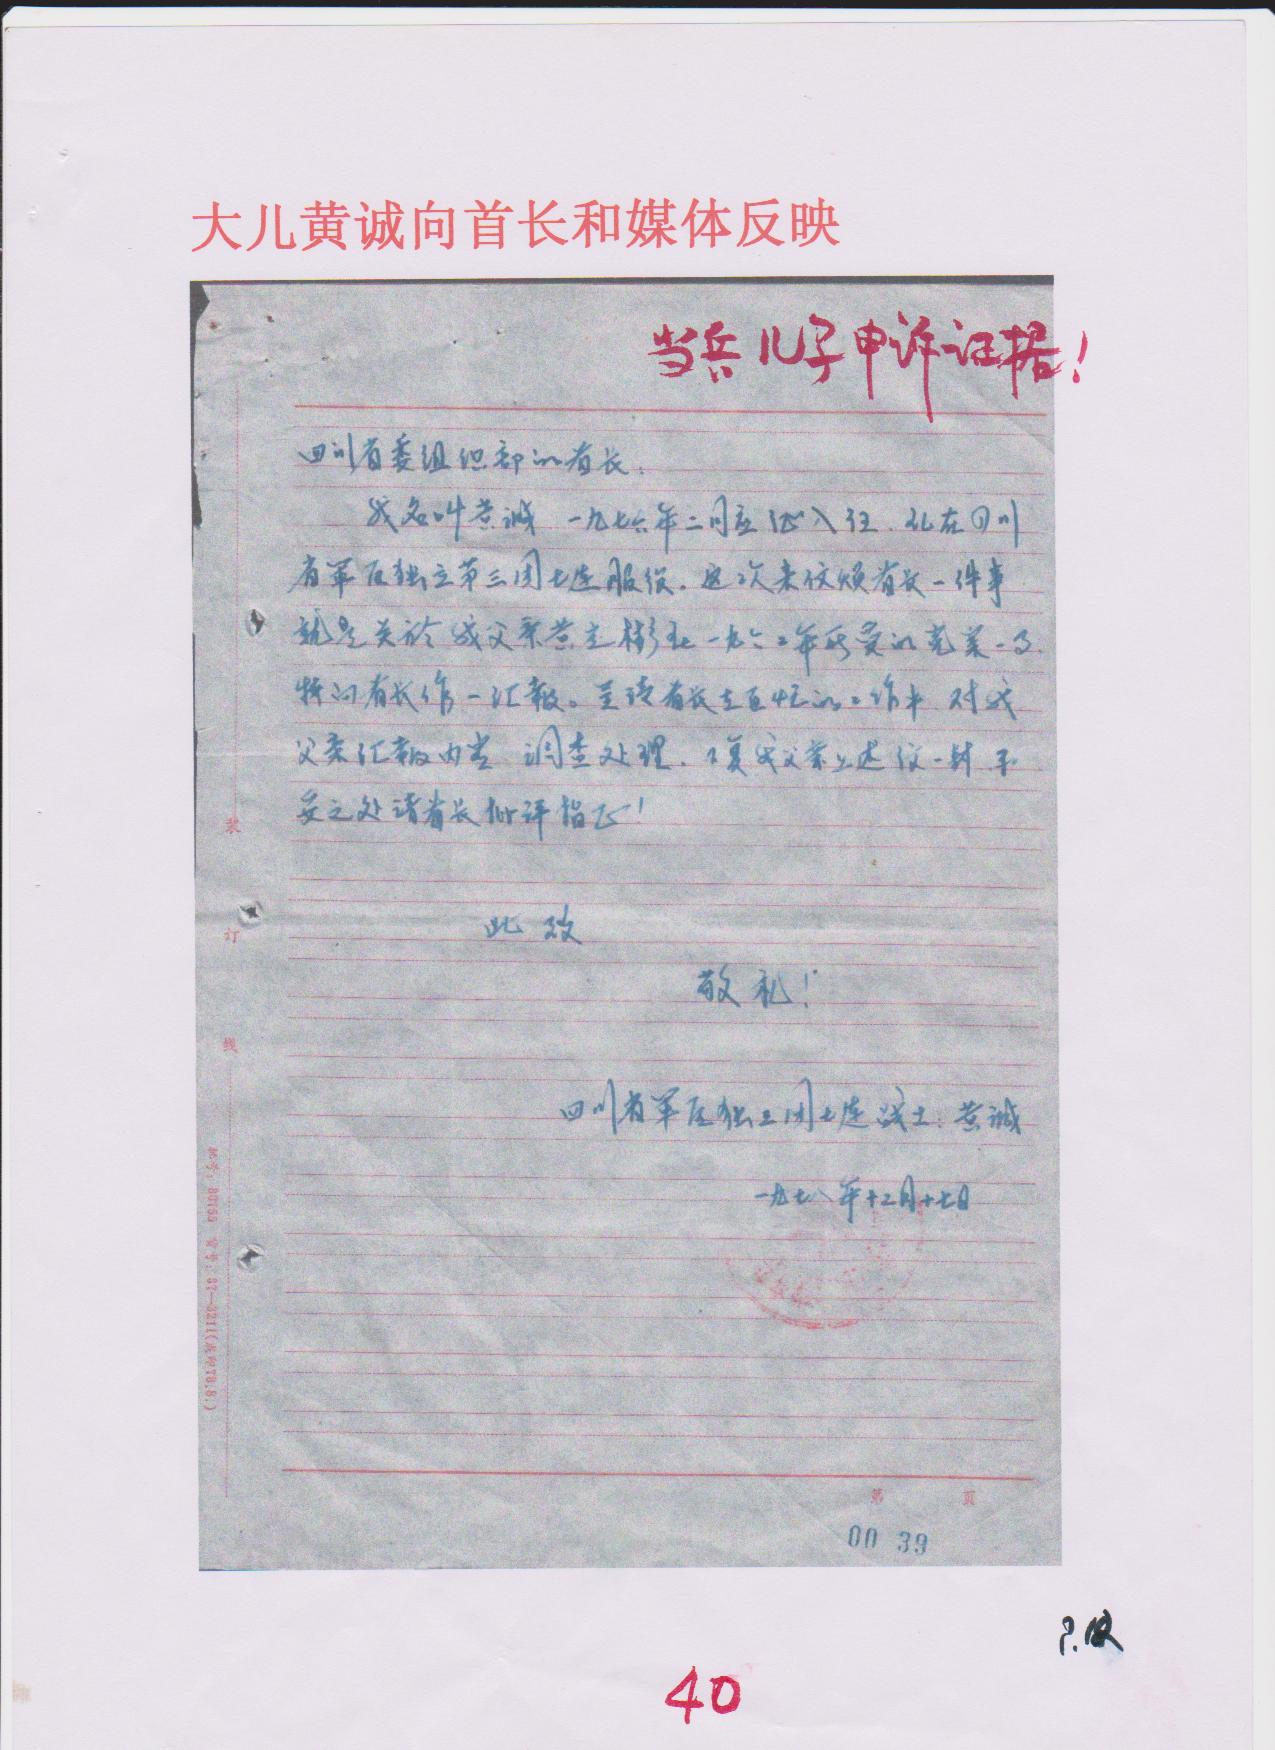 大儿黄诚向首长和媒体反映
当兵儿子申诉证据！
四川省委组织部的首长：
我名叫黄诚 一九七六年二月应征入伍．在四川
省军区独立第三团七连服役．这次来信烦首长一件事
就是关於我父亲黄 一九六二年所受的冤案一事．
特向首长作一汇报。 首长在百忙的工作中 对我
父亲汇报内容 调查处理． 我父亲上述信一封 不
妥之处请首长批评指正！
此致
敬礼！
四川省军区独三团七连战士：黄诚
一九七八年十二月十七日
装
订
线
第 页
00 39
40